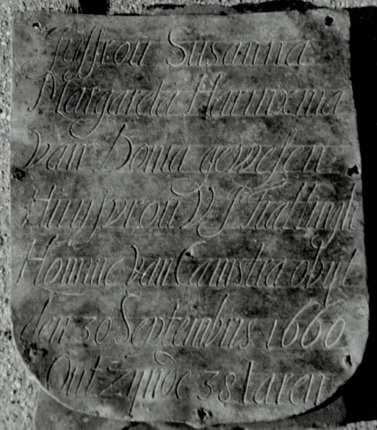 Juffrou Susanna
Margareta Harinxma
van Donia gewesen
Huijsvrou V
Homme van Camstra obijt
den 30 Septembris 1660
Out zynde 38 Iaren